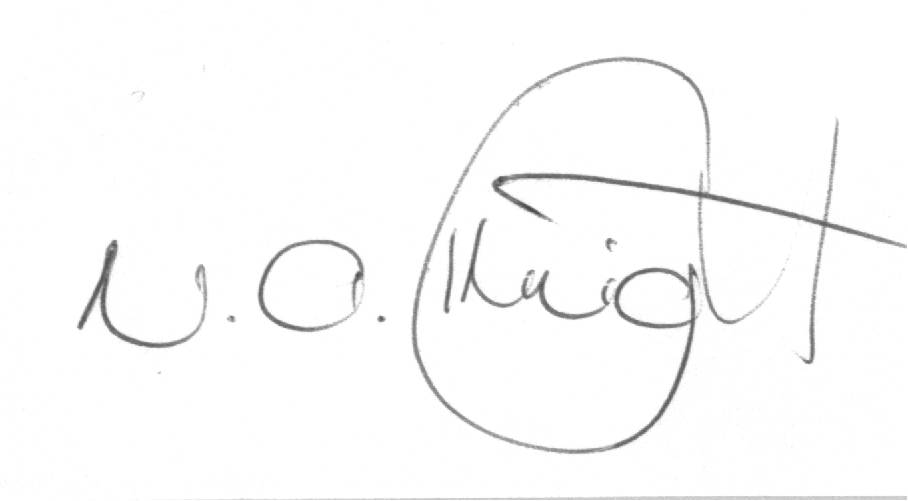 N. O. Knight